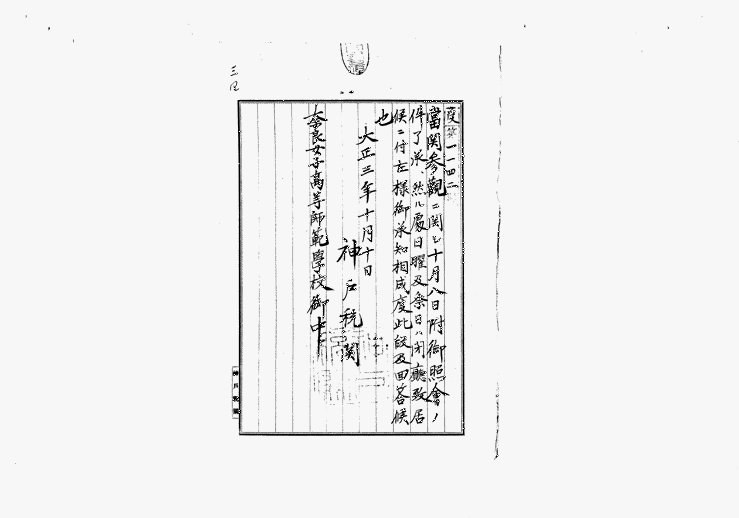 度第一一四二
當関參觀ニ関シ十月八日附御照會ノ
件了承、然ル處日曜及祭日ハ閉廳致居
候ニ付左様御承知相成度此段及回答候
也
大正三年十月十日
神戸税関
奈良女子高等師範學校御中
神戸税関